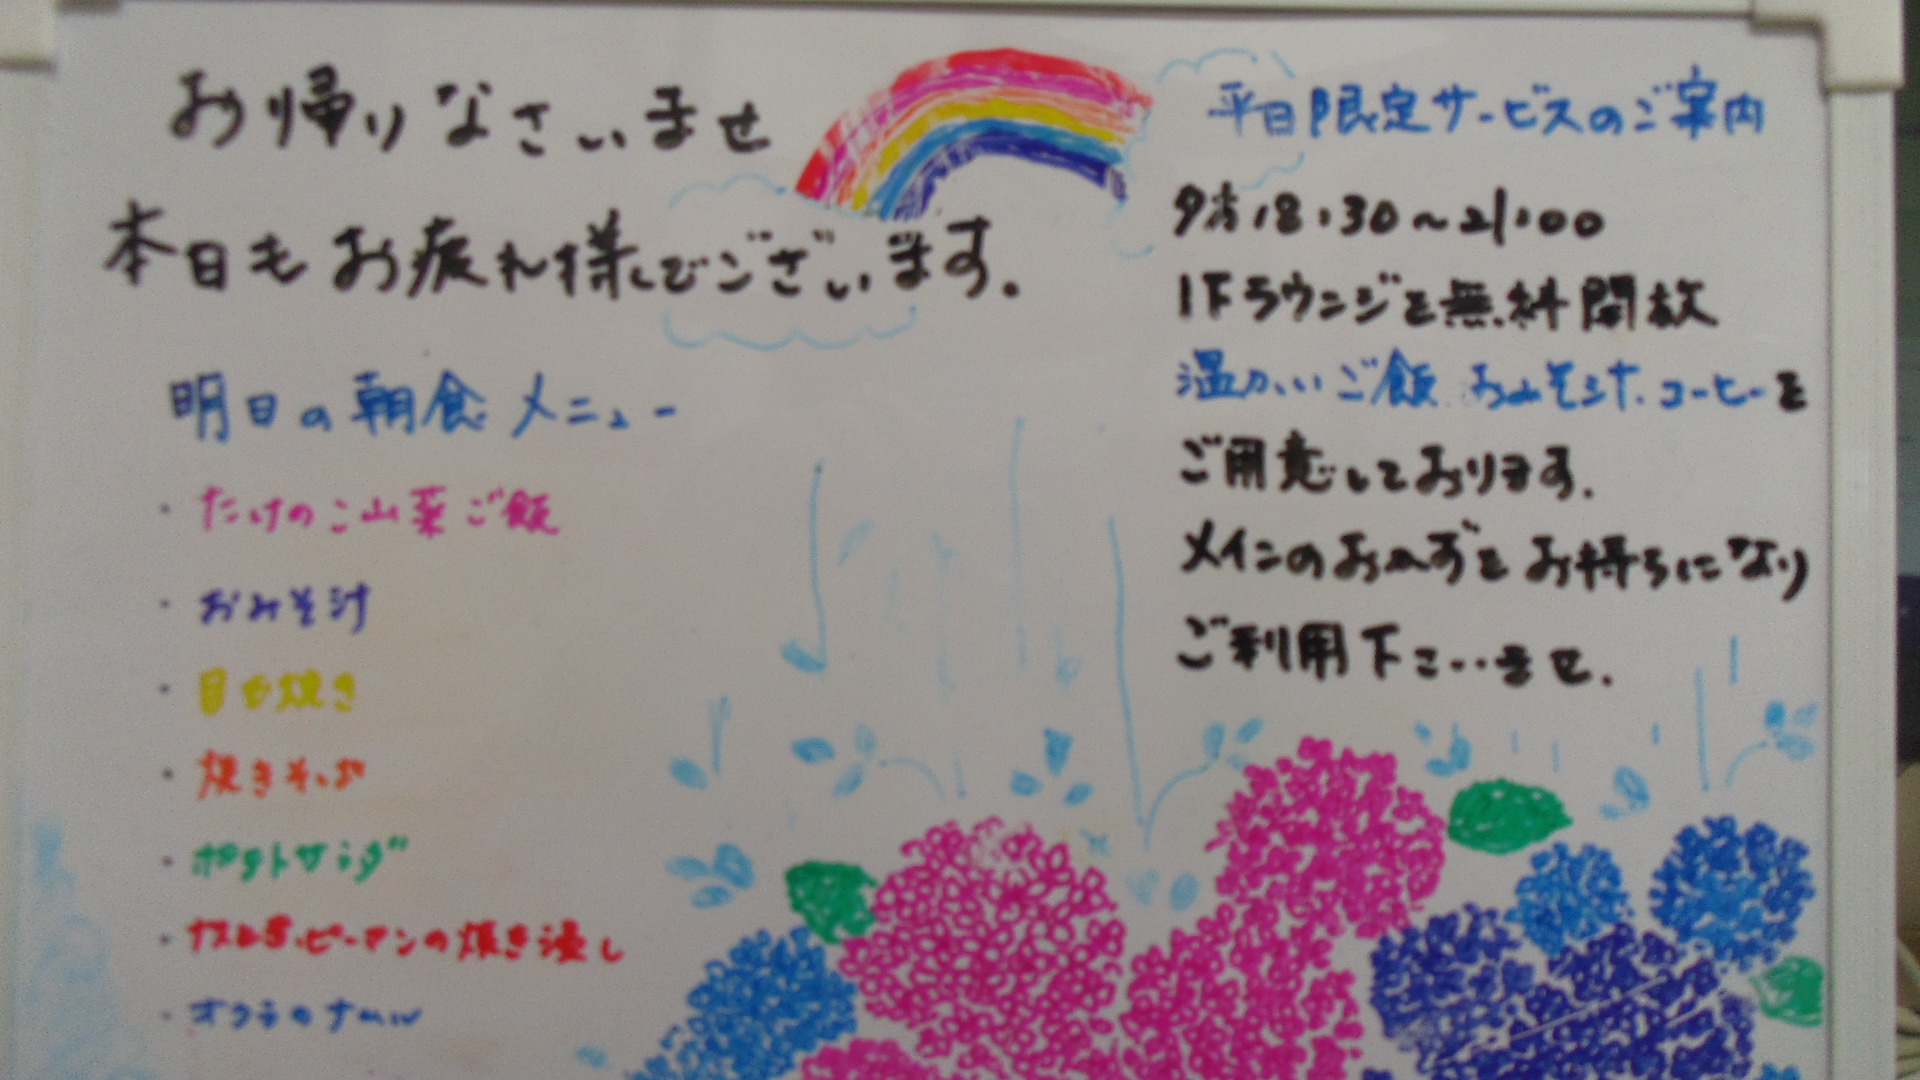 お帰りなさいませ
本日もお疲れ様でございます。
明日の朝食メニュー
・たけのこ山菜ご飯
・おみそ汁
・目玉焼き
・焼きそば
・ポテトサラダ
・ピーマンの焼き浸し
・オクラのナムル
平日限定サービスのご案内
夕方18:30～21:00
1Fラウンジを無料開放
温かいご飯、おみそ汁、コーヒーを
ご用意しております。
メインのおかずをお持ちになり
ご利用下さいませ。